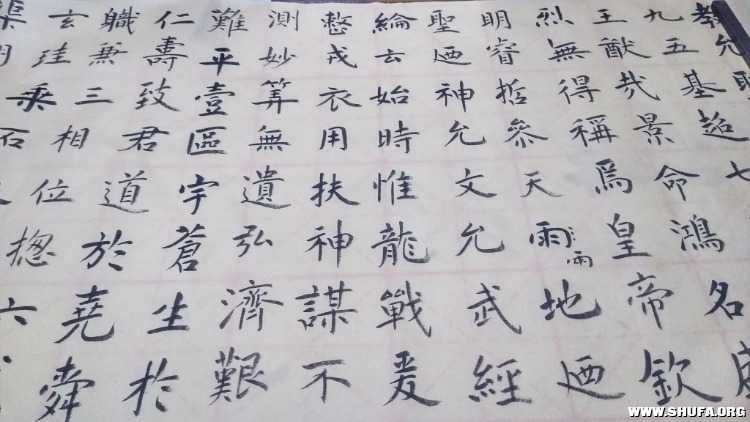 教允
九五基超七
王猷哉景命鴻名
烈無得稱焉皇帝欽
明睿哲參天雨雨地迺
聖迺神允文允武經
綸云始時惟龍戰爰
整戎衣用扶神謀不
測妙筭無遺弘濟艱
難平壹區宇蒼生於
仁壽致君道於堯舜
職兼三相位揔六
玄珪乘石
渠
WWW.SHUFA.ORG